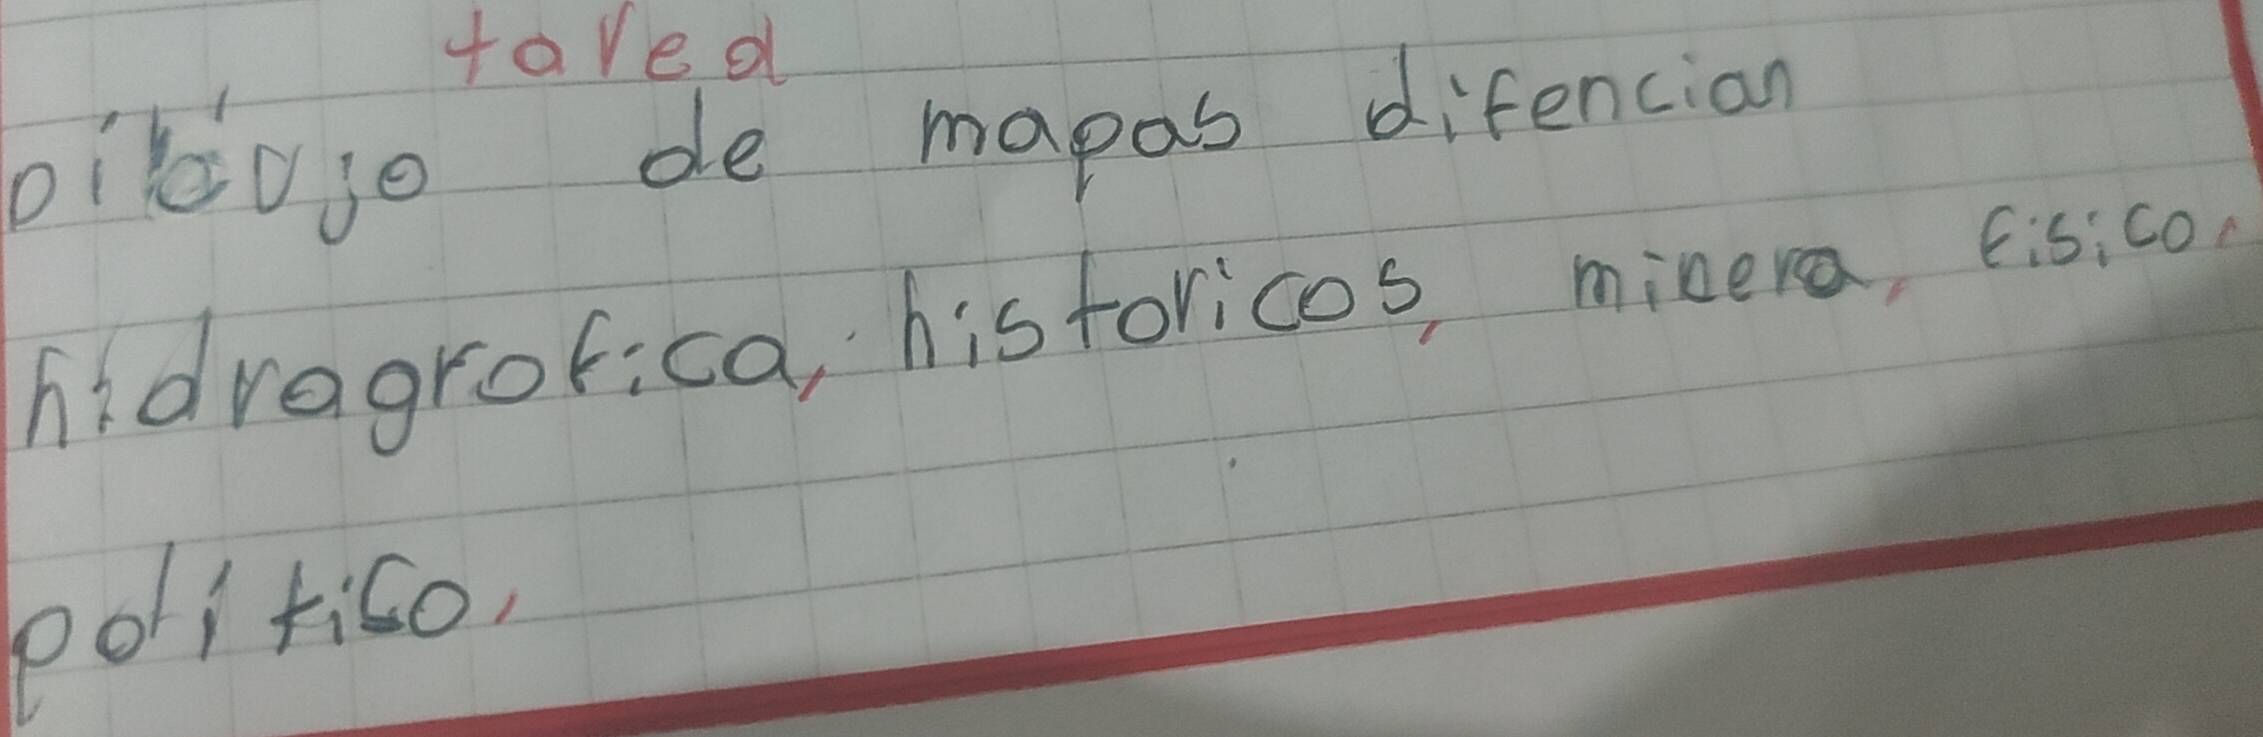 tarea
Dibujo de mapas difencian
hidragrofica, historicos, minera, fisico,
politico,